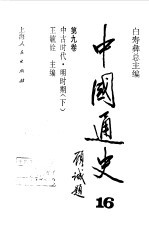 白寿彝总主编
中国通史
16
第九卷
中古时代·明时期（下）
王毓铨 主编
顾诚题
上海人民出版社